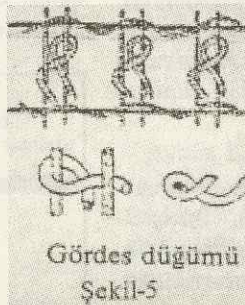 Gördes düğümü
Şekil-5